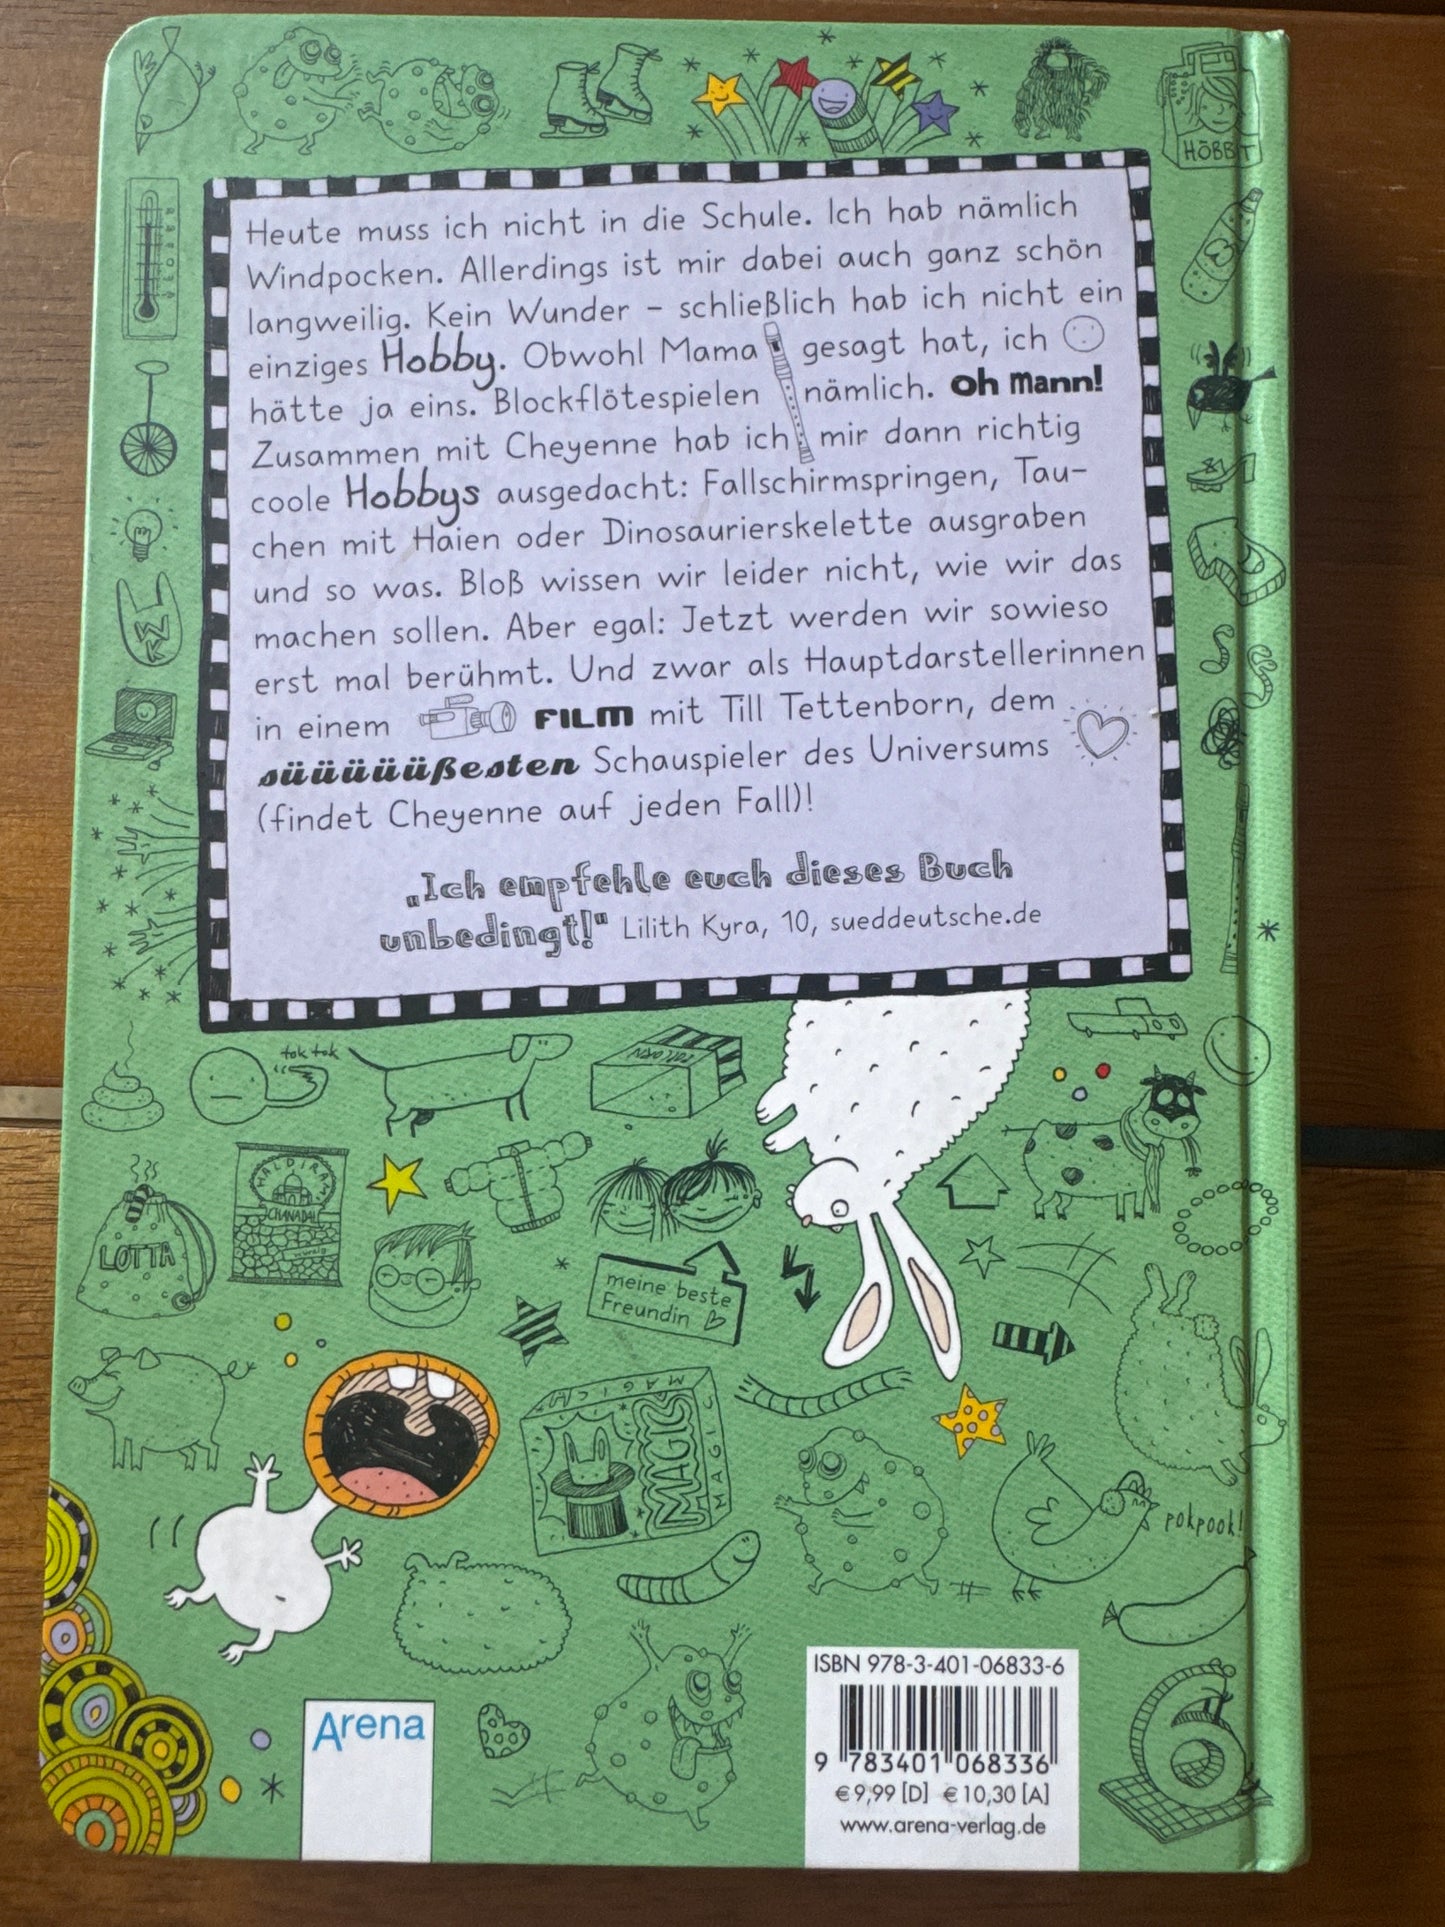 HÖBBIT
Heute muss ich nicht in die Schule. Ich hab nämlich
Windpocken. Allerdings ist mir dabei auch ganz schön
langweilig. Kein Wunder – schließlich hab ich nicht ein
einziges Hobby. Obwohl Mama gesagt hat, ich
hätte ja eins. Blockflötespielen nämlich. Oh Mann!
Zusammen mit Cheyenne hab ich mir dann richtig
coole Hobbys ausgedacht: Fallschirmspringen, Tau-
chen mit Haien oder Dinosaurierskelette ausgraben
und so was. Bloß wissen wir leider nicht, wie wir das
machen sollen. Aber egal: Jetzt werden wir sowieso
erst mal berühmt. Und zwar als Hauptdarstellerinnen
in einem FILM mit Till Tettenborn, dem
süüüüüüßesten Schauspieler des Universums
(findet Cheyenne auf jeden Fall)!
„Ich empfehle euch dieses Buch
unbedingt!" Lilith Kyra, 10, sueddeutsche.de
tok tok
POPCORN
HALDIRAM
CHANADAL
LOTTA
meine beste
Freundin
MAGIC
MAGIC
MAGIC
pokpook!
6
Arena
ISBN 978-3-401-06833-6
9 783401 068336
€ 9,99 [D] € 10,30 [A]
www.arena-verlag.de